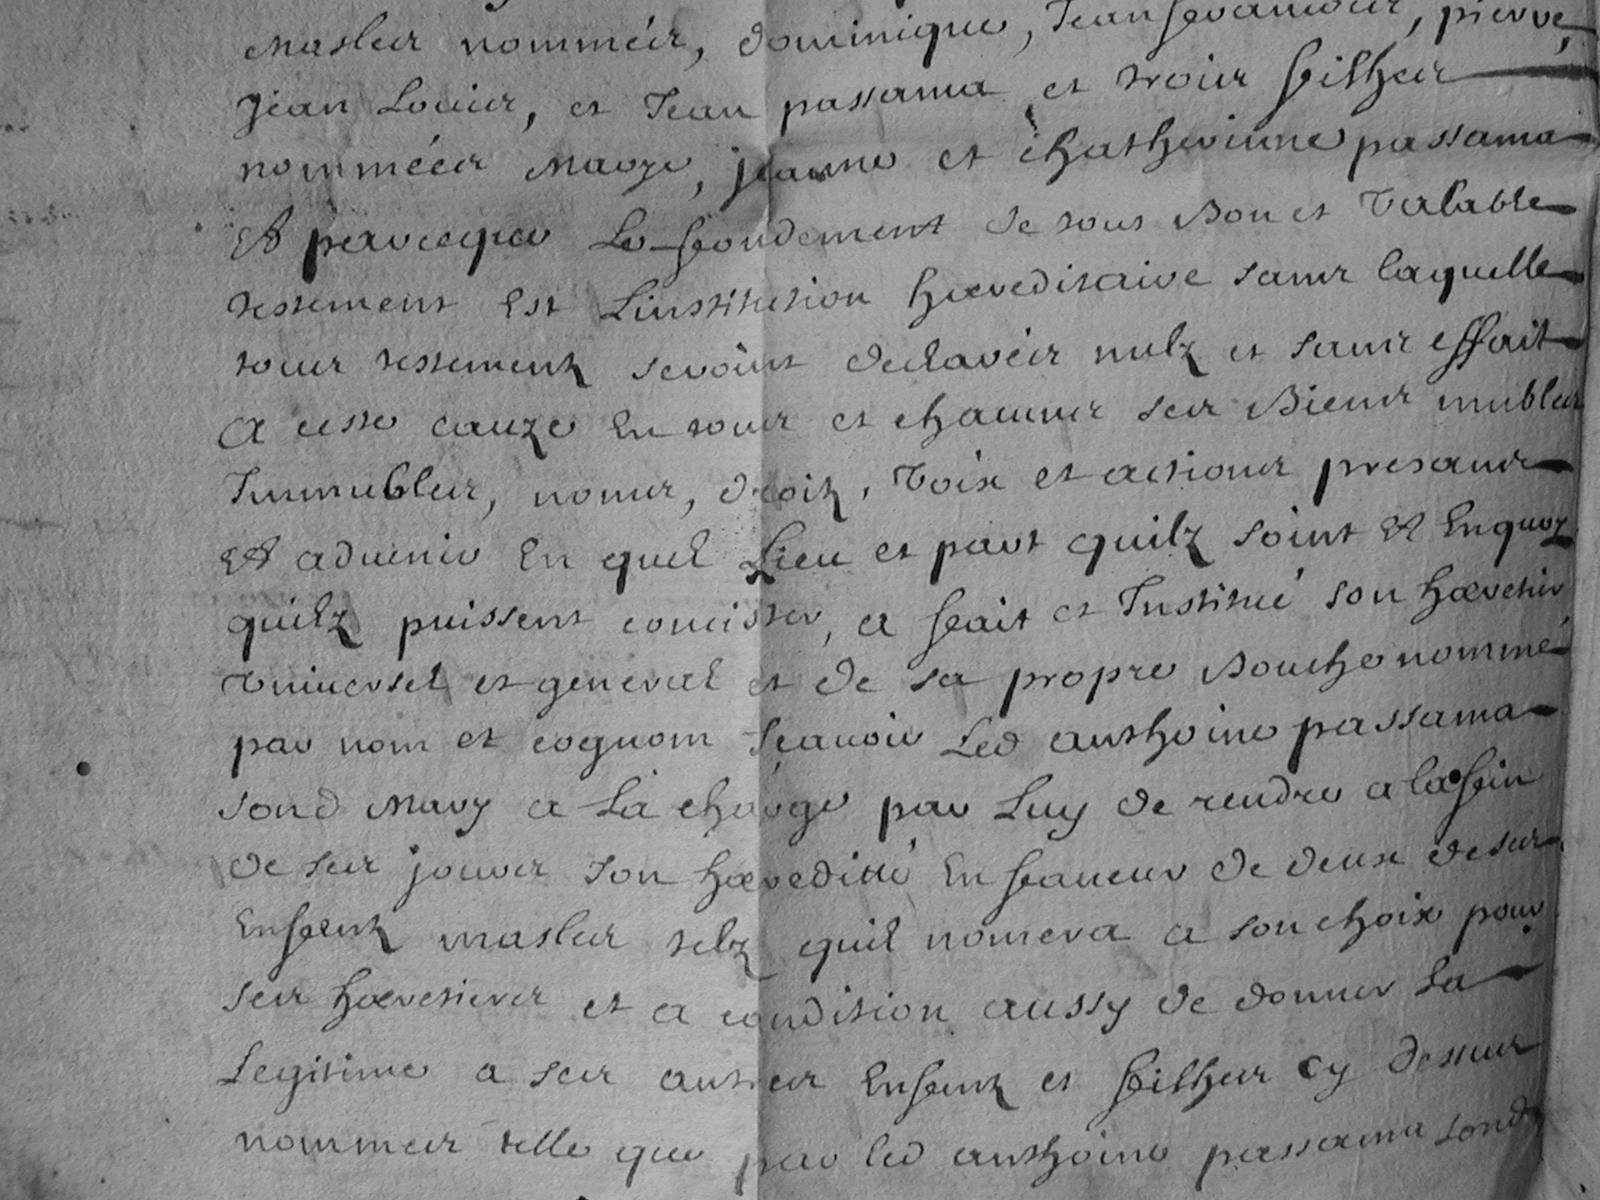 masles nommés, dominique, Jean francois, pierre,
Jean Louis, et Jean passama et trois filhes
nommées Marye, jeanne et Chatherinne passama
Et parceque Le fondement de tous Bon et valable
testement Est Linstitution hæreditaire sans laquelle
tous testementz seroint declarés nulz et sans effait
A cette cauze En tous et chacuns ses Biens mubles
Immubles, noms, droitz, voix et actions presans
Et aduenir En quel Lieu et part quilz soint Et Enquoy
quilz puissent concister, a fait et Institué son hæretier
vniuersel et general et de sa propre Bouche nommé
par nom et cognom scauoir Led anthoine passama
sond Mary a La charge par Luy de rendre a la fin
de ses jours son hæredité En faueur de deux de ses
Enfentz masles telz quil nomera a son choix pour
ses hæretiers et a condition aussy de donner La
Legitime a ses autres Enfentz et filhes cy dessus
nommes telle que par led anthoine passama sond